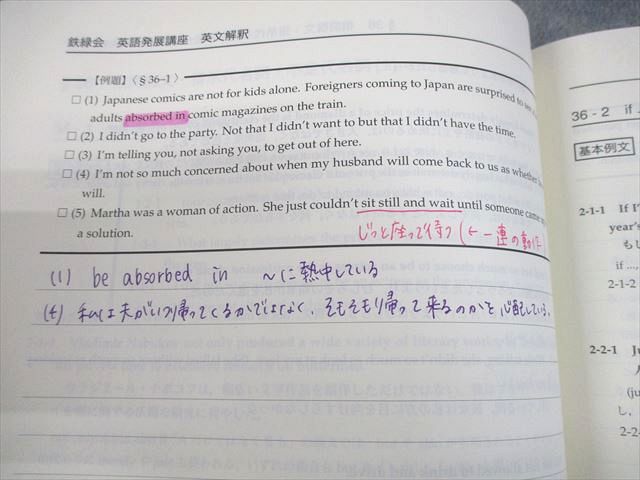 鉄緑会 英語発展講座 英文解釈
【例題】〈§36-1〉
□ (1) Japanese comics are not for kids alone. Foreigners coming to Japan are surprised to see
adults absorbed in comic magazines on the train.
□ (2) I didn't go to the party. Not that I didn't want to but that I didn't have the time.
□ (3) I'm telling you, not asking you, to get out of here.
□ (4) I'm not so much concerned about when my husband will come back to us as whether he
will.
□ (5) Martha was a woman of action. She just couldn't sit still and wait until someone came
a solution.
じっと座って待つ (←一連の動作)
(1) be absorbed in ~に熱中している
(4) 私は夫がいつ帰ってくるかではなく、そもそもり帰って来るのかを心配している。
36-2 if
基本例文
2-1-1 If I
year's
もし
if ....
2-1-2
2-2-1 Ju
人
(ju
し,
2-2-